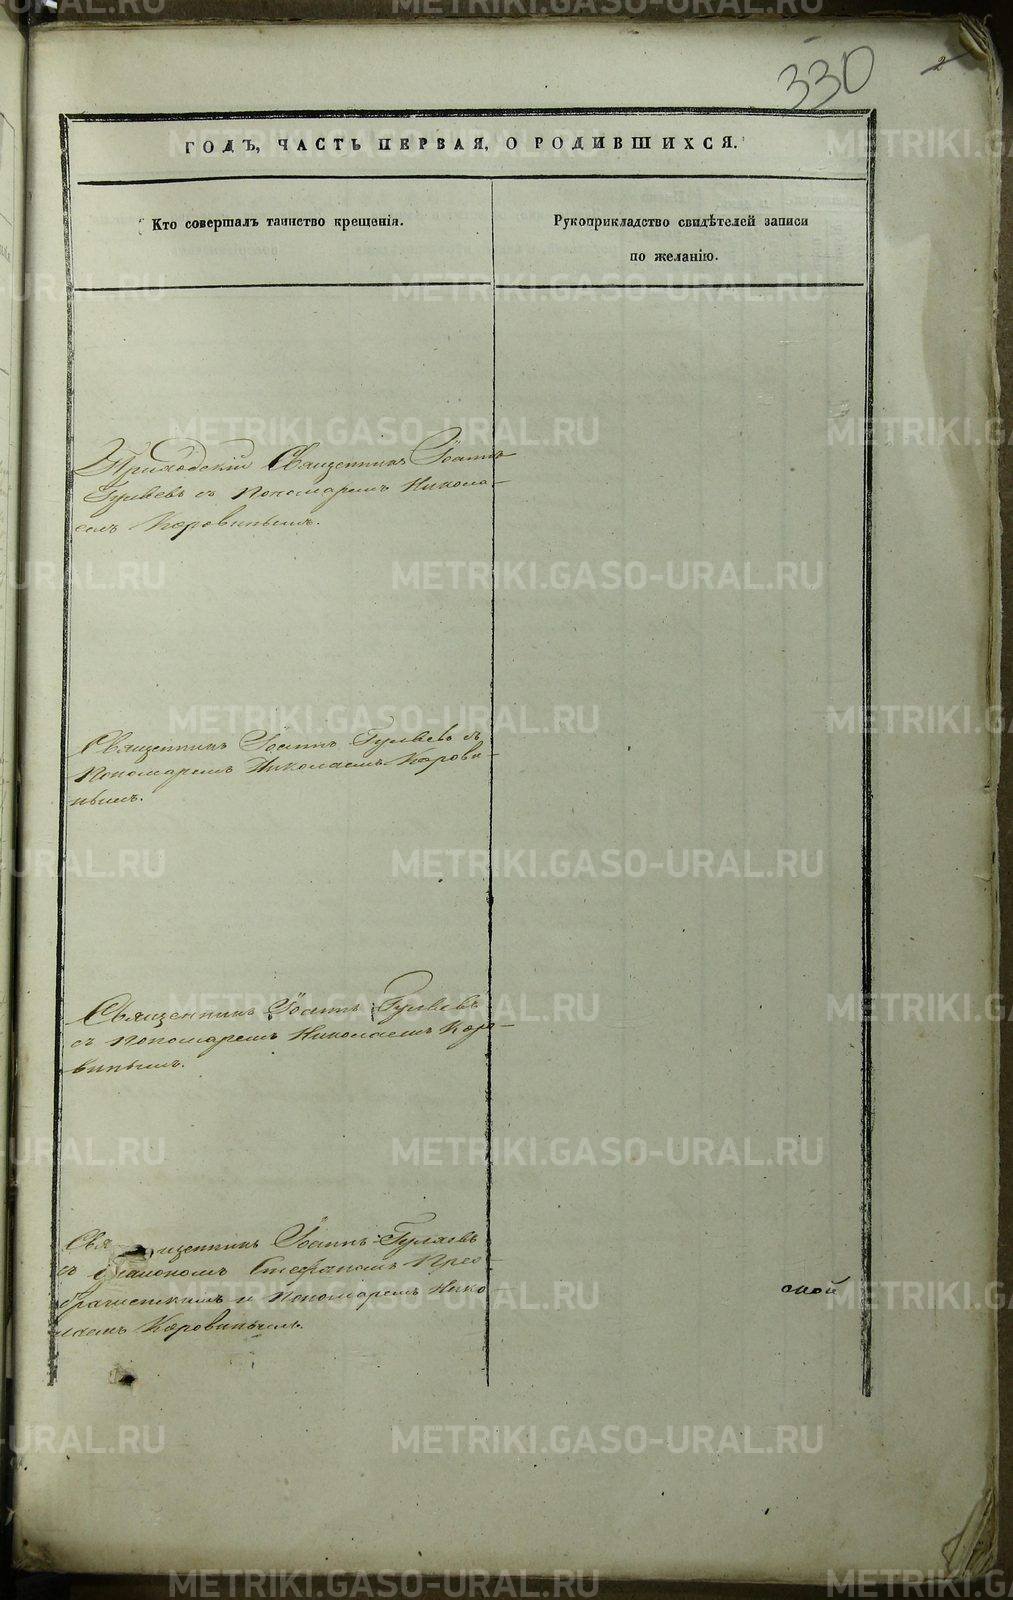 330
2
ГОДЪ, ЧАСТЬ ПЕРВАЯ, О РОДИВШИХСЯ.
Кто совершалъ таинство крещенія.
Рукоприкладство свидѣтелей записи
по желанію.
Приходскій Священникъ Іоаннъ
Гуляевъ съ Пономаремъ Никола-
емъ Коровинымъ.
Священникъ Іоаннъ Гуляевъ съ
Пономаремъ Николаемъ Корови-
нымъ.
Священникъ Іоаннъ Гуляевъ
съ Пономаремъ Николаемъ Коро-
винымъ.
Священникъ Іоаннъ Гуляевъ
съ Діакономъ Стефаномъ Прео
браженскимъ и Пономаремъ Нико
лаемъ Коровинымъ.
ской
METRIKI.GASO-URAL.RU